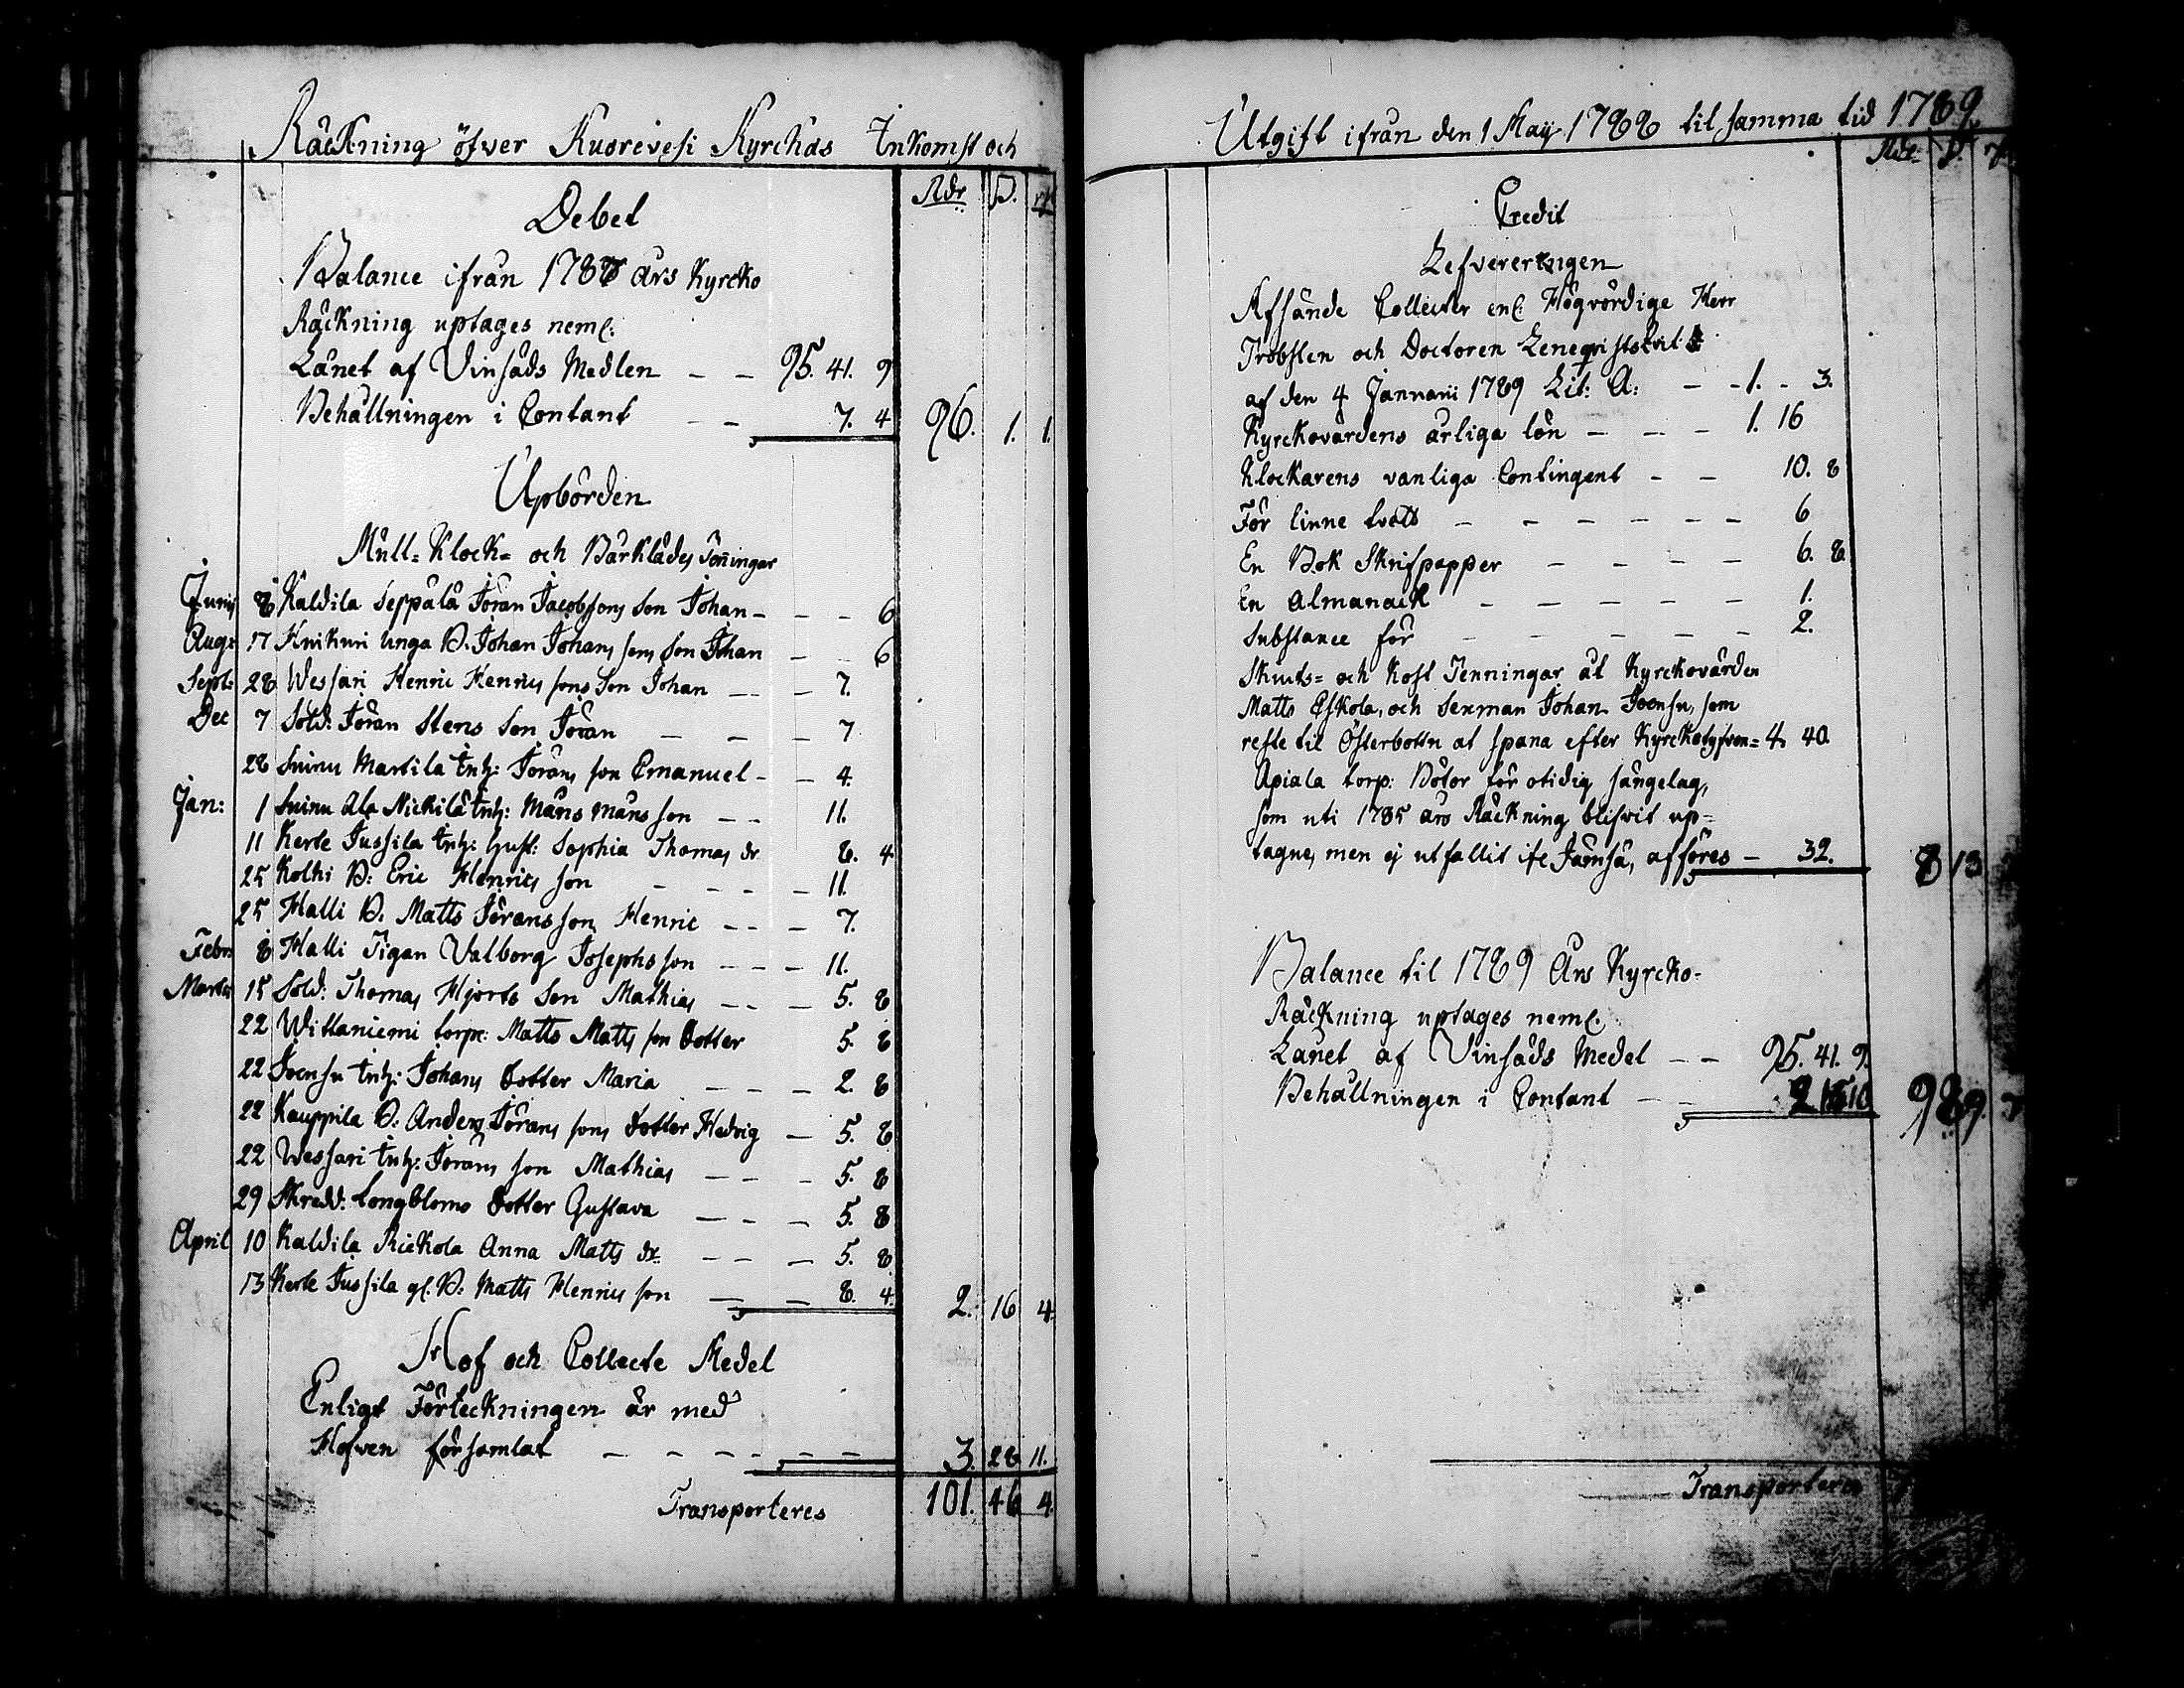 Räckning öfver Kuorivesi Kyrckas Inkomst och
Rdr ß. rst
Debet
Balance ifrån 1787 års Kyrcko
Räckning uptages neml.
Lånet af Vinsäds Medlen — — 95. 41. 9
Behållningen i Contant — — 7. 4 96. 1. 1.
Upbörden
Mull= Klock= och Bårklädes Penningar
Junii 8 Kaldila Seppälä Jöran Jacobssons Son Johan — — — 6
Aug: 17 Unga B. Johan Johans sons Son Johan — — 6
Sept: 28 Wessari Henric Henrics sons Son Johan — — — 7.
Dec 7 Sold: Jöran Stens Son Jöran — — — 7
28 Suinu Martila Inh: Jörans son Emanuel — — 4.
Jan: 1 Suinu Ala Nickilä Inh: Måns Måns son — — 11.
11 Kerte Jussila Inh: hust: Sophia Thomas dr 8. 4
25 Kolhi B: Eric Henrics son — — — — 11.
25 Halli B. Matts Jörans son Henric — — — 7.
Febr 8 Halli Tigan Valborg Josephs son — — — 11.
Martii 15 Sold: Thomas Hjorts Son Mathias — — — 5. 8
22 Wittaniemi torp: Matts Matts son Dotter 5. 8
22 Joensu Inh: Johans Dotter Maria — — — 2. 8
22 Kauppila B: Anders Jörans sons Dotter Hedvig — 5. 8
22 Wessari Inh: Jörans son Mathias — — — 5. 8
29 Skredd: Longbloms Dotter Gustava — — — 5. 8
April 10 Kaldila Rickola Anna Matts dr — — — 5. 8
13 Kerte Jussila gl. B: Matts Henrics son — — 8. 4. 2. 16 4
Hof och Collecte Medel
Enligt Förteckningen är med
Hofwen församlat — — — — — — 3. 28 11.
Transporteres 101. 46 4.
Utgift ifrån den 1 Maij 1788 til samma tid 1789.
Rdr ß.
Credit
Lefvereringen
Afsände Collecter enl. Högvördige Herr
Probsten och Doctoren
af den 4 Januarii 1789 Lit: A: — — 1. — 3.
Kyrckovärdens årliga lön — — — 1. 16
Klockarens vanliga Contingent — — 10. 8
För linne tvätt — — — — — — 6
En Bok Skrifpapper — — — — 6. 8
En Almanack — — — — — 1.
Substance för — — — — — 2.
Skiuts= och Kost Penningar åt Kyrckovärden
Matts Eskola, och Sexman Johan Joensu, som
reste til Österbottn at spana efter Kyrckotjufven = 4. 40.
Apiala torp: Böter för otidig sängelag,
som uti 1785 års Räckning blifvit up=
tagne, men ej utfallit ifr Jämsä, afföres — 32. 8 13
Balance til 1789 Års Kyrcko=
Räckning uptages neml.
Lånet af Vinsäds Medel — — 95. 41. 9.
Behållningen i Contant — —
Transporteres